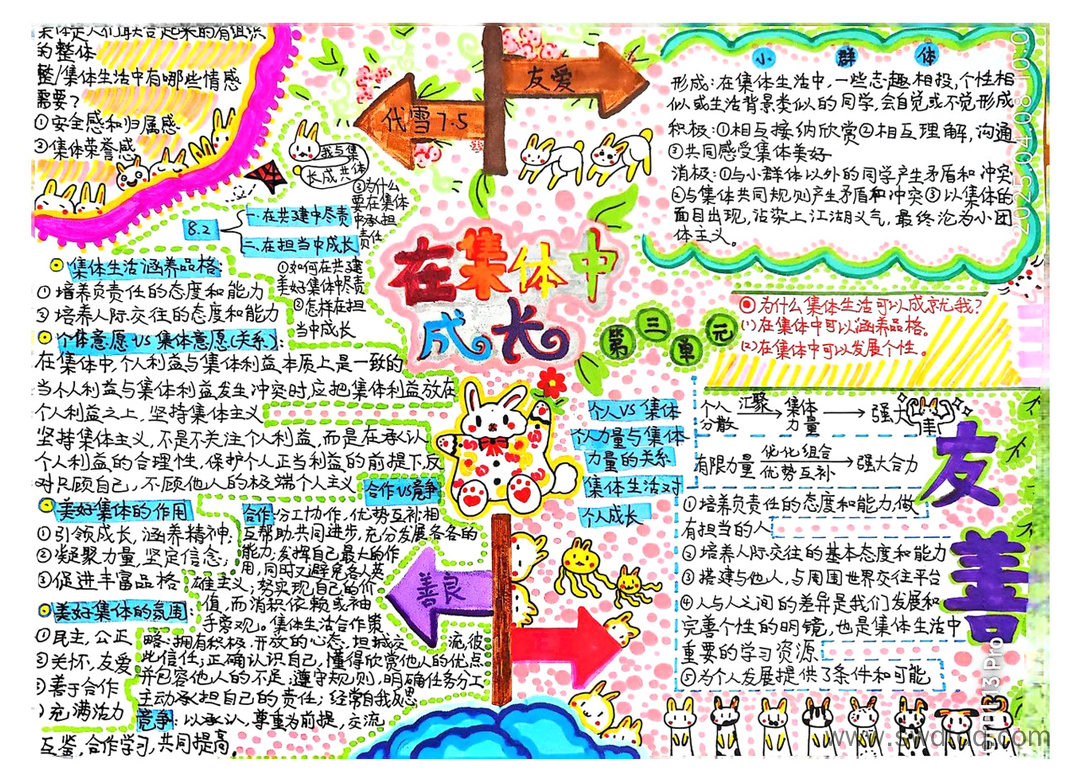 集体是人们联合起来的有组织
的整体
整/集体生活中有哪些情感
需要?
①安全感和归属感
②集体荣誉感
代雪7.5
友爱
我与集
长成共体
③为什么
要在集体
中承担
责任
8.2
一.在共建中尽责
二.在担当中成长
①如何在共建
美好集体中尽责
②怎样在担
当中成长
小群体
形成:在集体生活中,一些志趣相投,个性相
似或生活背景类似的同学,会自觉或不觉形成
积极:①相互接纳欣赏②相互理解,沟通
③共同感受集体美好
消极:①与小群体以外的同学产生矛盾和冲突
②与集体共同规则产生矛盾和冲突③以集体的
面目出现,沾染上江湖义气,最终沦为小团
体主义。
在集体中
成长
第三单元
为什么集体生活可以成就我?
(1)在集体中可以涵养品格。
(2)在集体中可以发展个性。
集体生活涵养品格:
①培养负责任的态度和能力
②培养人际交往的态度和能力
个体意愿VS集体意愿(关系):
在集体中,个人利益与集体利益本质上是一致的
当个人利益与集体利益发生冲突时应把集体利益放在
个人利益之上,坚持集体主义
坚持集体主义,不是不关注个人利益,而是在承认
个人利益的合理性,保护个人正当利益的前提下反
对只顾自己,不顾他人的极端个人主义
美好集体的作用
①引领成长,涵养精神.
②凝聚力量,坚定信念,
③促进丰富品格
美好集体的氛围
①民主,公正
②关怀,友爱
③善于合作
充满活力
合作VS竞争
合作分工协作,优势互补相
互帮助,共同进步,充分发展各各的
能力,发挥自己最大的作
用,同时又避免各人英
雄主义;努实现自己的价
值,而消积依赖或袖
手旁观。集体生活合作策
略:拥有积极、开放的心态,坦诚交流,彼
此信任;正确认识自己,懂得欣赏他人的优点
并包容他人的不足,遵守规则,明确任务分工
主动承担自己的责任;经常自我反思
竞争:以承认,尊重为前提,交流
互鉴,合作学习,共同提高。
善良
个人VS集体
个力量与集体
力量的关系
集体生活对
个人成长
个人 汇聚 集体 强大
分散 力量
有限力量 优化组合 强大合力
优势互补
①培养负责任的态度和能力,做
有担当的人
②培养人际交往的基本态度和能力
③搭建与他人,与周围世界交往平台
④人与人之间的差异是我们发展和
完善个性的明镜,也是集体生活中
重要的学习资源
⑤为个人发展提供了条件和可能
友
善